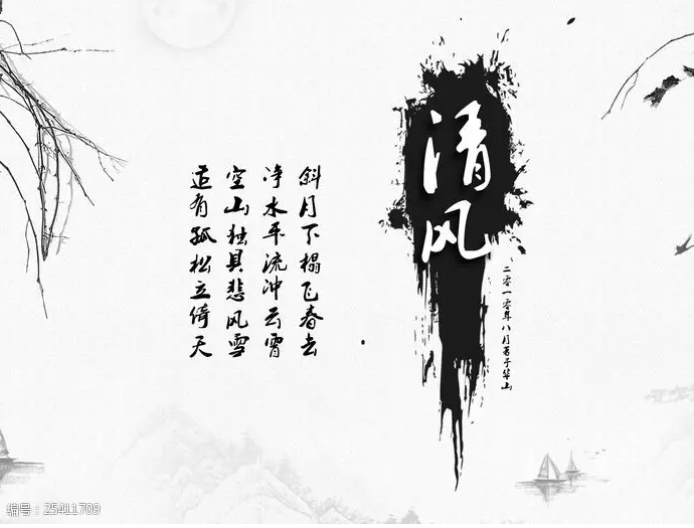 清风
二零一零年八月著于华山
斜月下榻飞春去
净水平流冲云霄
空山独具悲风雪
造有孤松立倚天
编号:25411709